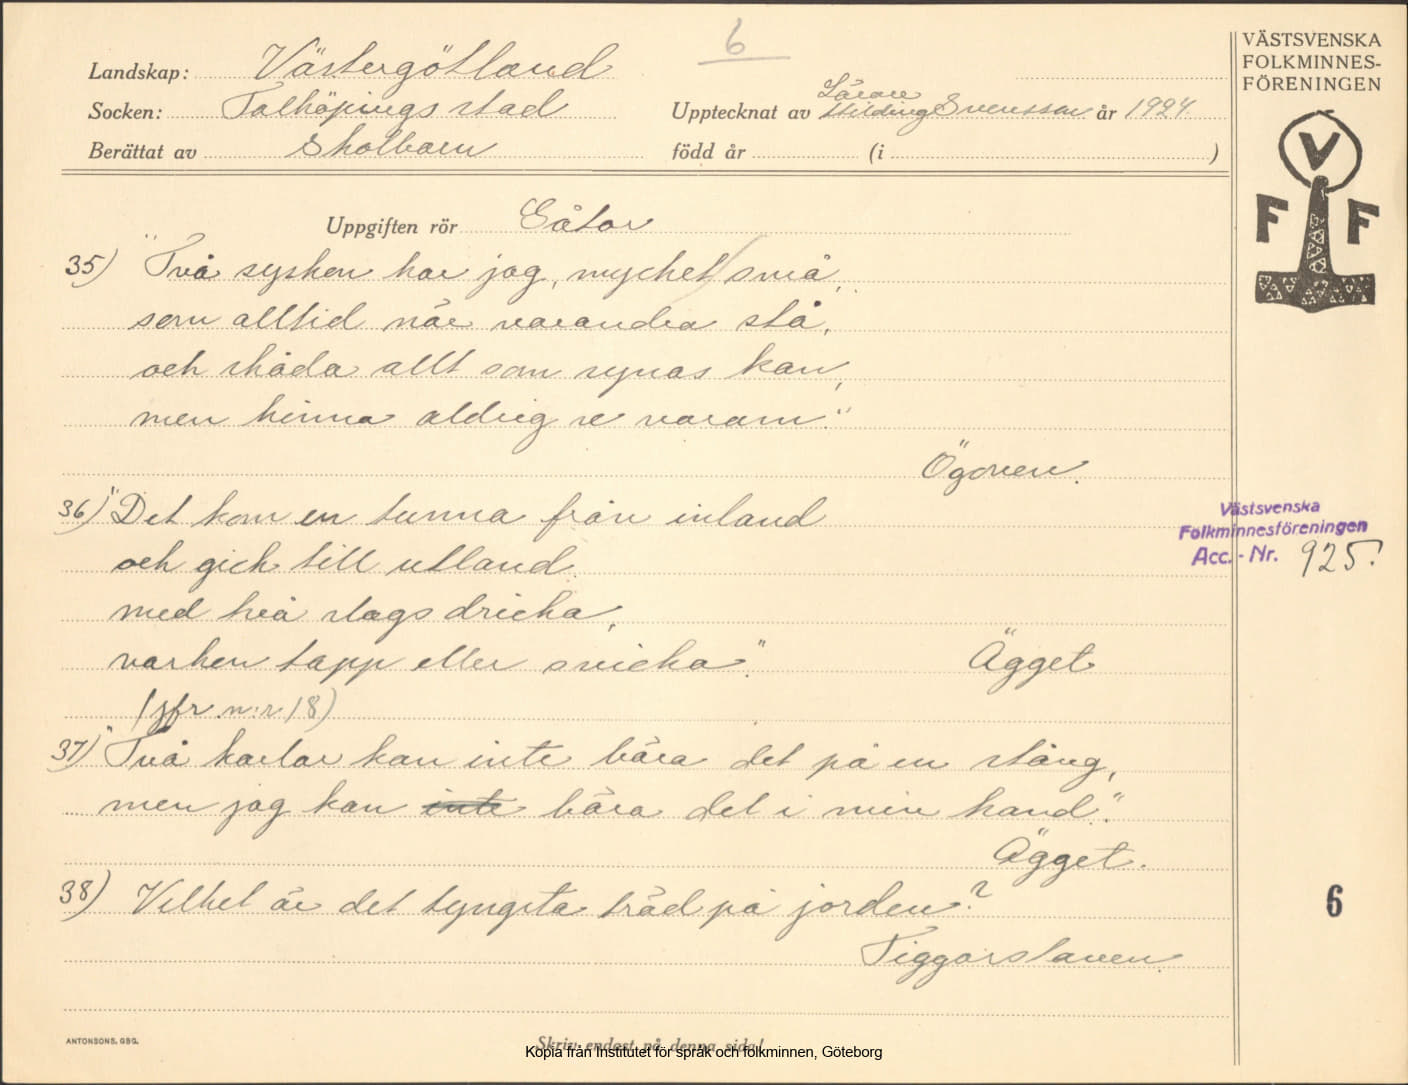 6
VÄSTSVENSKA
FOLKMINNES-
FÖRENINGEN
Landskap: Västergötland
Socken: Falköpings stad
Upptecknat av Lärare Hilding Svensson år 1924.
Berättat av Skolbarn
född år (i )
V
F F
Uppgiften rör Gåtor
35) "Två sysken har jag, mycket små,
som alltid när varandra stå,
och skåda allt som synas kan,
men hinna aldrig se varann."
Ögonen.
36) "Det kom en tunna från inland
och gick till utland
med två slags dricka,
varken tapp eller svicka". Ägget
(jfr n:r 18)
37) "Två karlar kan inte bära det på en stång,
men jag kan inte bära det i min hand".
Ägget.
38) Vilket är det tyngsta träd på jorden?
Tiggarstaven.
Västsvenska
Folkminnesföreningen
Acc.-Nr. 925.
6
ANTONSONS, GBG.
Skriv endast på denna sida!
Kopia från Institutet för språk och folkminnen, Göteborg